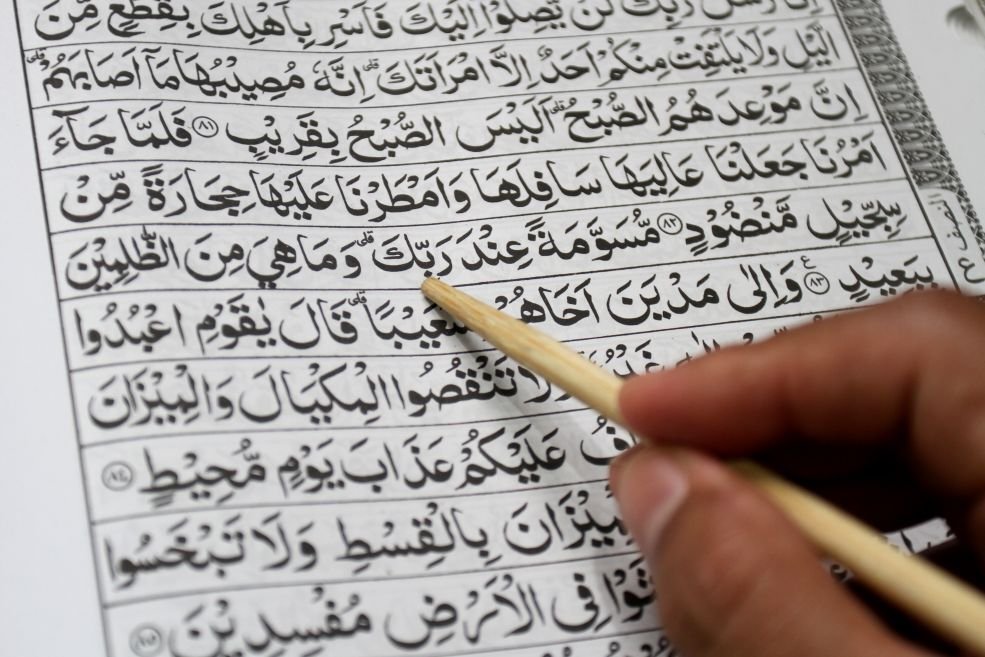 اِنَّا رُسُلُ رَبِّكَ لَنْ يَّصِلُوْٓا اِلَيْكَ فَاَسْرِ بِاَهْلِكَ بِقِطْعٍ مِّنَ
الَّيْلِ وَلَا يَلْتَفِتْ مِنْكُمْ اَحَدٌ اِلَّا امْرَاَتَكَ ۗ اِنَّهٗ مُصِيْبُهَا مَآ اَصَابَهُمْ ۗ
اِنَّ مَوْعِدَهُمُ الصُّبْحُ ۗ اَلَيْسَ الصُّبْحُ بِقَرِيْبٍ ﴿٨١﴾ فَلَمَّا جَآءَ
اَمْرُنَا جَعَلْنَا عَالِيَهَا سَافِلَهَا وَاَمْطَرْنَا عَلَيْهَا حِجَارَةً مِّنْ
سِجِّيْلٍ مَّنْضُوْدٍ ﴿٨٢﴾ مُّسَوَّمَةً عِنْدَ رَبِّكَ ۗ وَمَا هِيَ مِنَ الظّٰلِمِيْنَ
بِبَعِيْدٍ ﴿٨٣﴾ ع وَاِلٰى مَدْيَنَ اَخَاهُمْ شُعَيْبًا ۗ قَالَ يٰقَوْمِ اعْبُدُوا
غَيْرُهٗ وَلَا تَنْقُصُوا الْمِكْيَالَ وَالْمِيْزَانَ
عَلَيْكُمْ عَذَابَ يَوْمٍ مُّحِيْطٍ ﴿٨٤﴾
بِالْقِسْطِ وَلَا تَبْخَسُوا
فِى الْاَرْضِ مُفْسِدِيْنَ ﴿٨٥﴾
النصف
ع